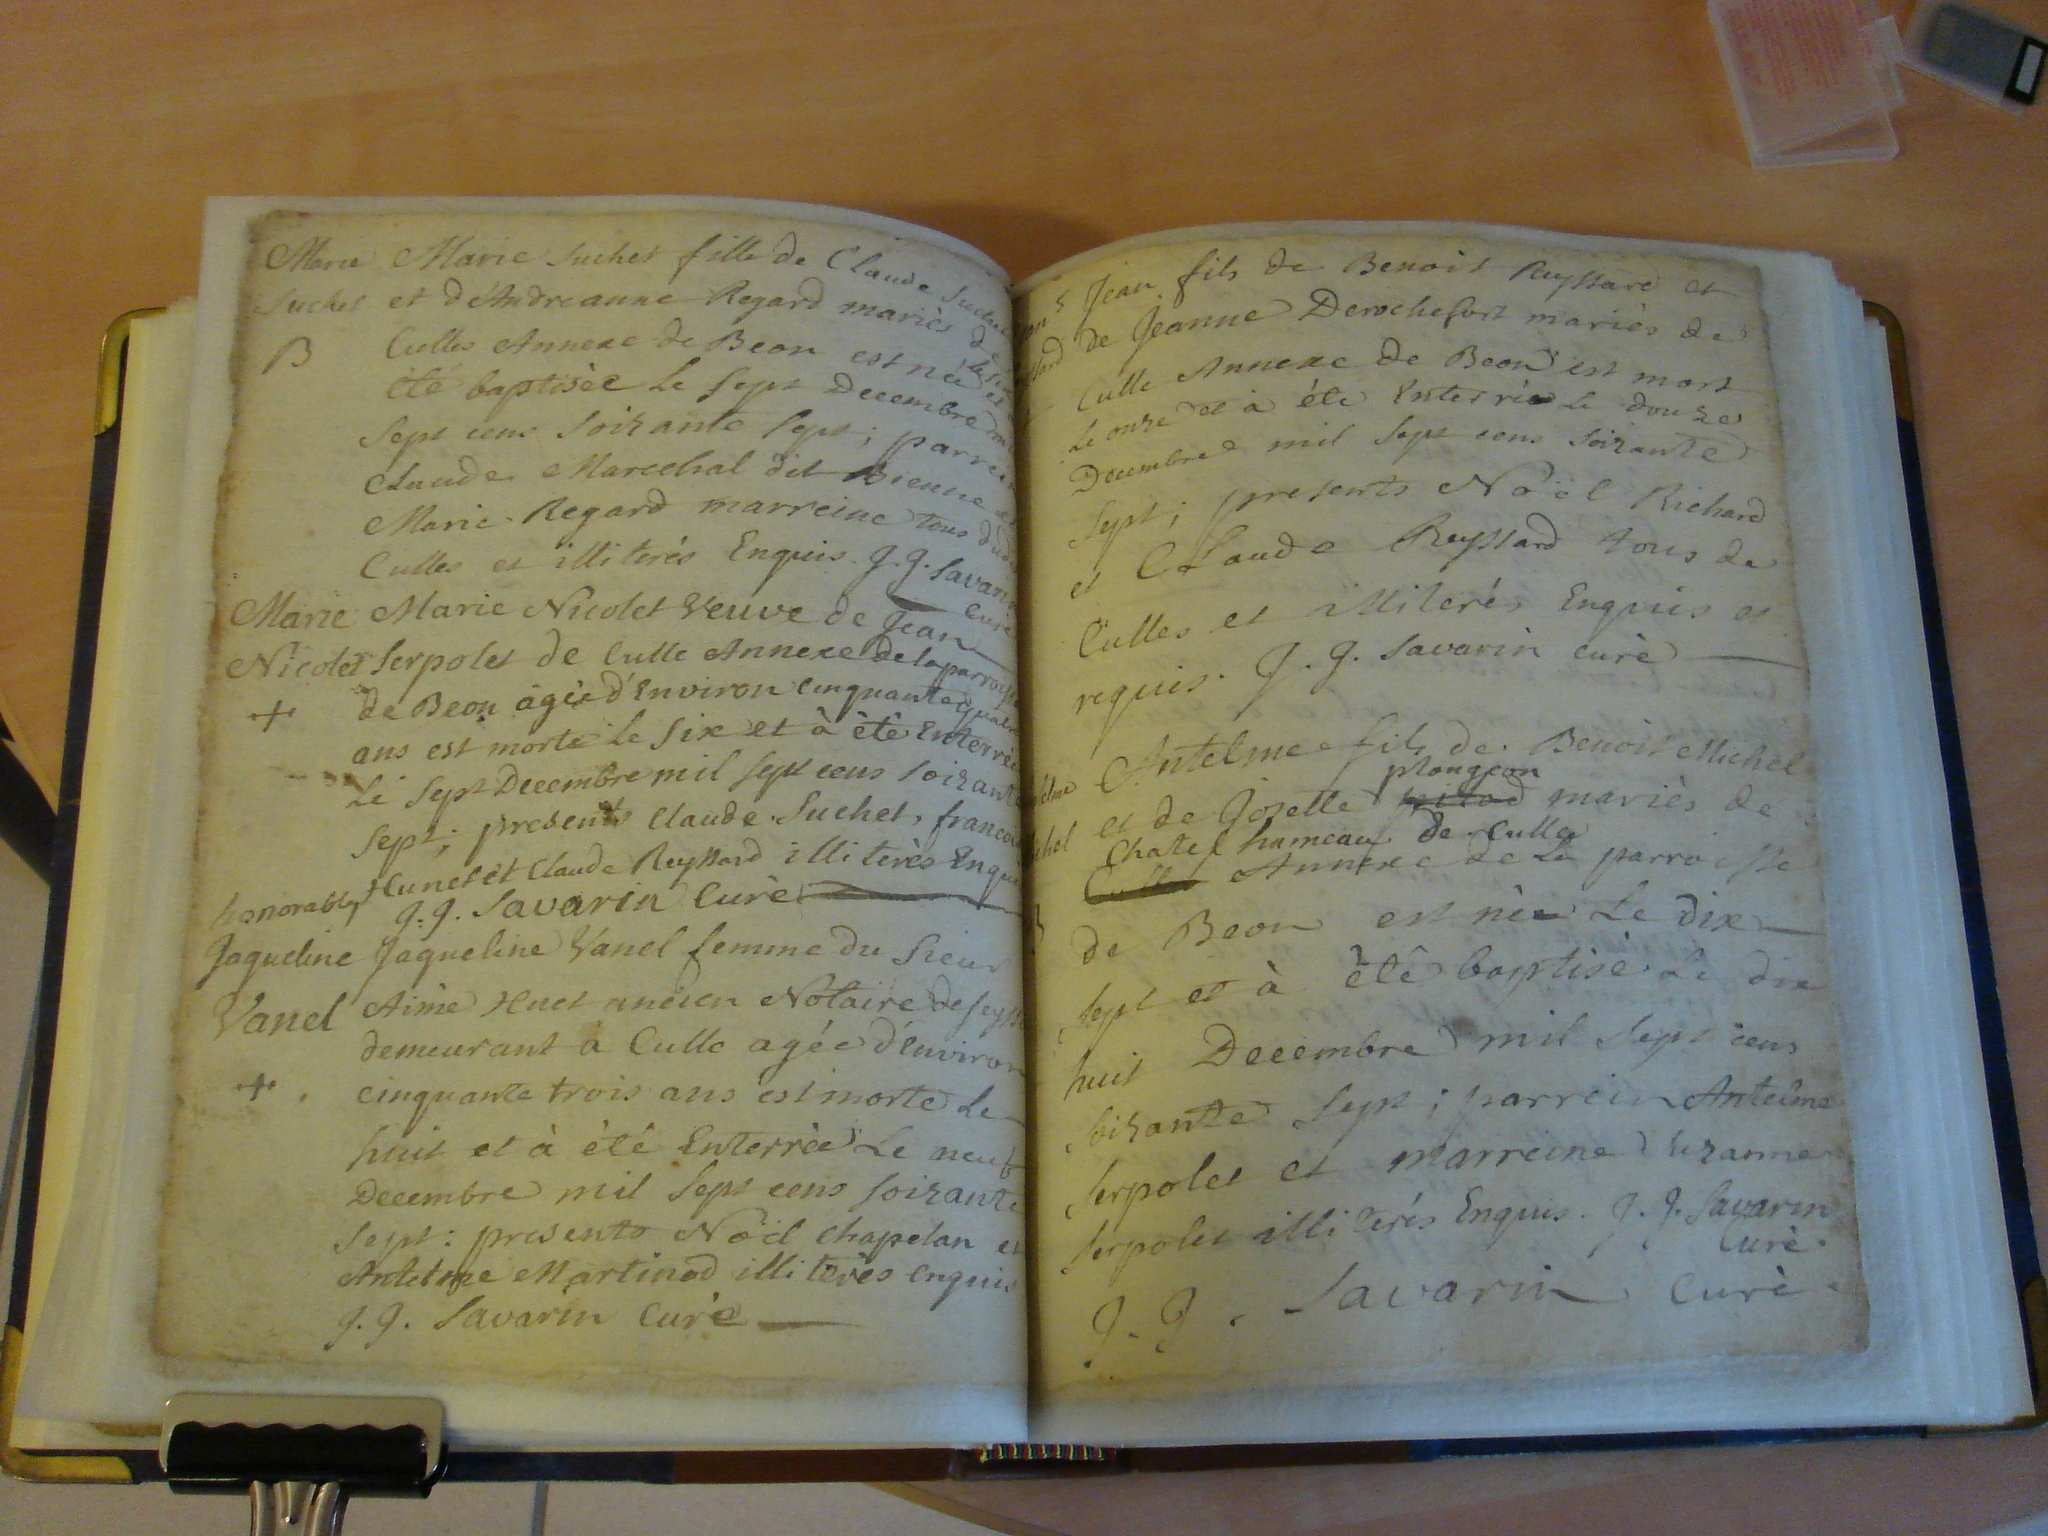 Marie Marie Suchet fille de Claude Suchet
Suchet et d'Andreanne Regard mariès de
B Culles Annexe de Beon est née le six et à
été baptisèe Le sept Decembre mil
sept cens soixante sept; parrein
Claude Marechal dit Bienne et
Marie Regard marreine tous dudt
Culles et illiterés Enquis. J. J. Savarin
Curé
Marie Marie Nicolet Veuve de Jean
Nicolet Serpolet de Culle Annexe de la parroisse
+ de Beon âgèe d'Environ cinquante quatre
ans est morte Le six et à ètè Enterrèe
Le sept Decembre mil sept cens soixante
sept; presents Claude Suchet, francois
Hunet et Claude Reyssard illiterès Enquis
honorable J. J. Savarin Curè
Jaqueline Jaqueline Vanel femme du Sieur
Vanel Aimè Huet ancien Notaire de
demeurant à Culle agée d'Environ
+ cinquante trois ans est morte Le
huit et à été Enterrèe Le neuf
Decembre mil sept cens soixante
sept: presents Noël Chapelan et
Antelme Martinod illiterès enquis
J. J. Savarin Curè
Jean fils de Benoit Reyssard et
de Jeanne Derochefort mariès de
Culle Annexe de Beon est mort
Le onze et à été Enterrè Le douze
Decembre mil sept cens soixante
sept; presents Noël Richard
et Claude Reyssard tous de
Culles et illiterés Enquis et
requis. J. J. Savarin curè
Antelme fils de Benoit Michel
plongeon
et de Josette mariès de
Chatel hameau de Culle
Culles Annexe de La parroisse
B de Beon est nèe Le dix
sept et à ètê baptisé Le dix
huit Decembre mil sept cens
soixante sept; parrein Antelme
Serpolet et marreine Suzanne
Serpolet illiterés Enquis. J. J. Savarin
Curè.
J. J. Savarin Curè